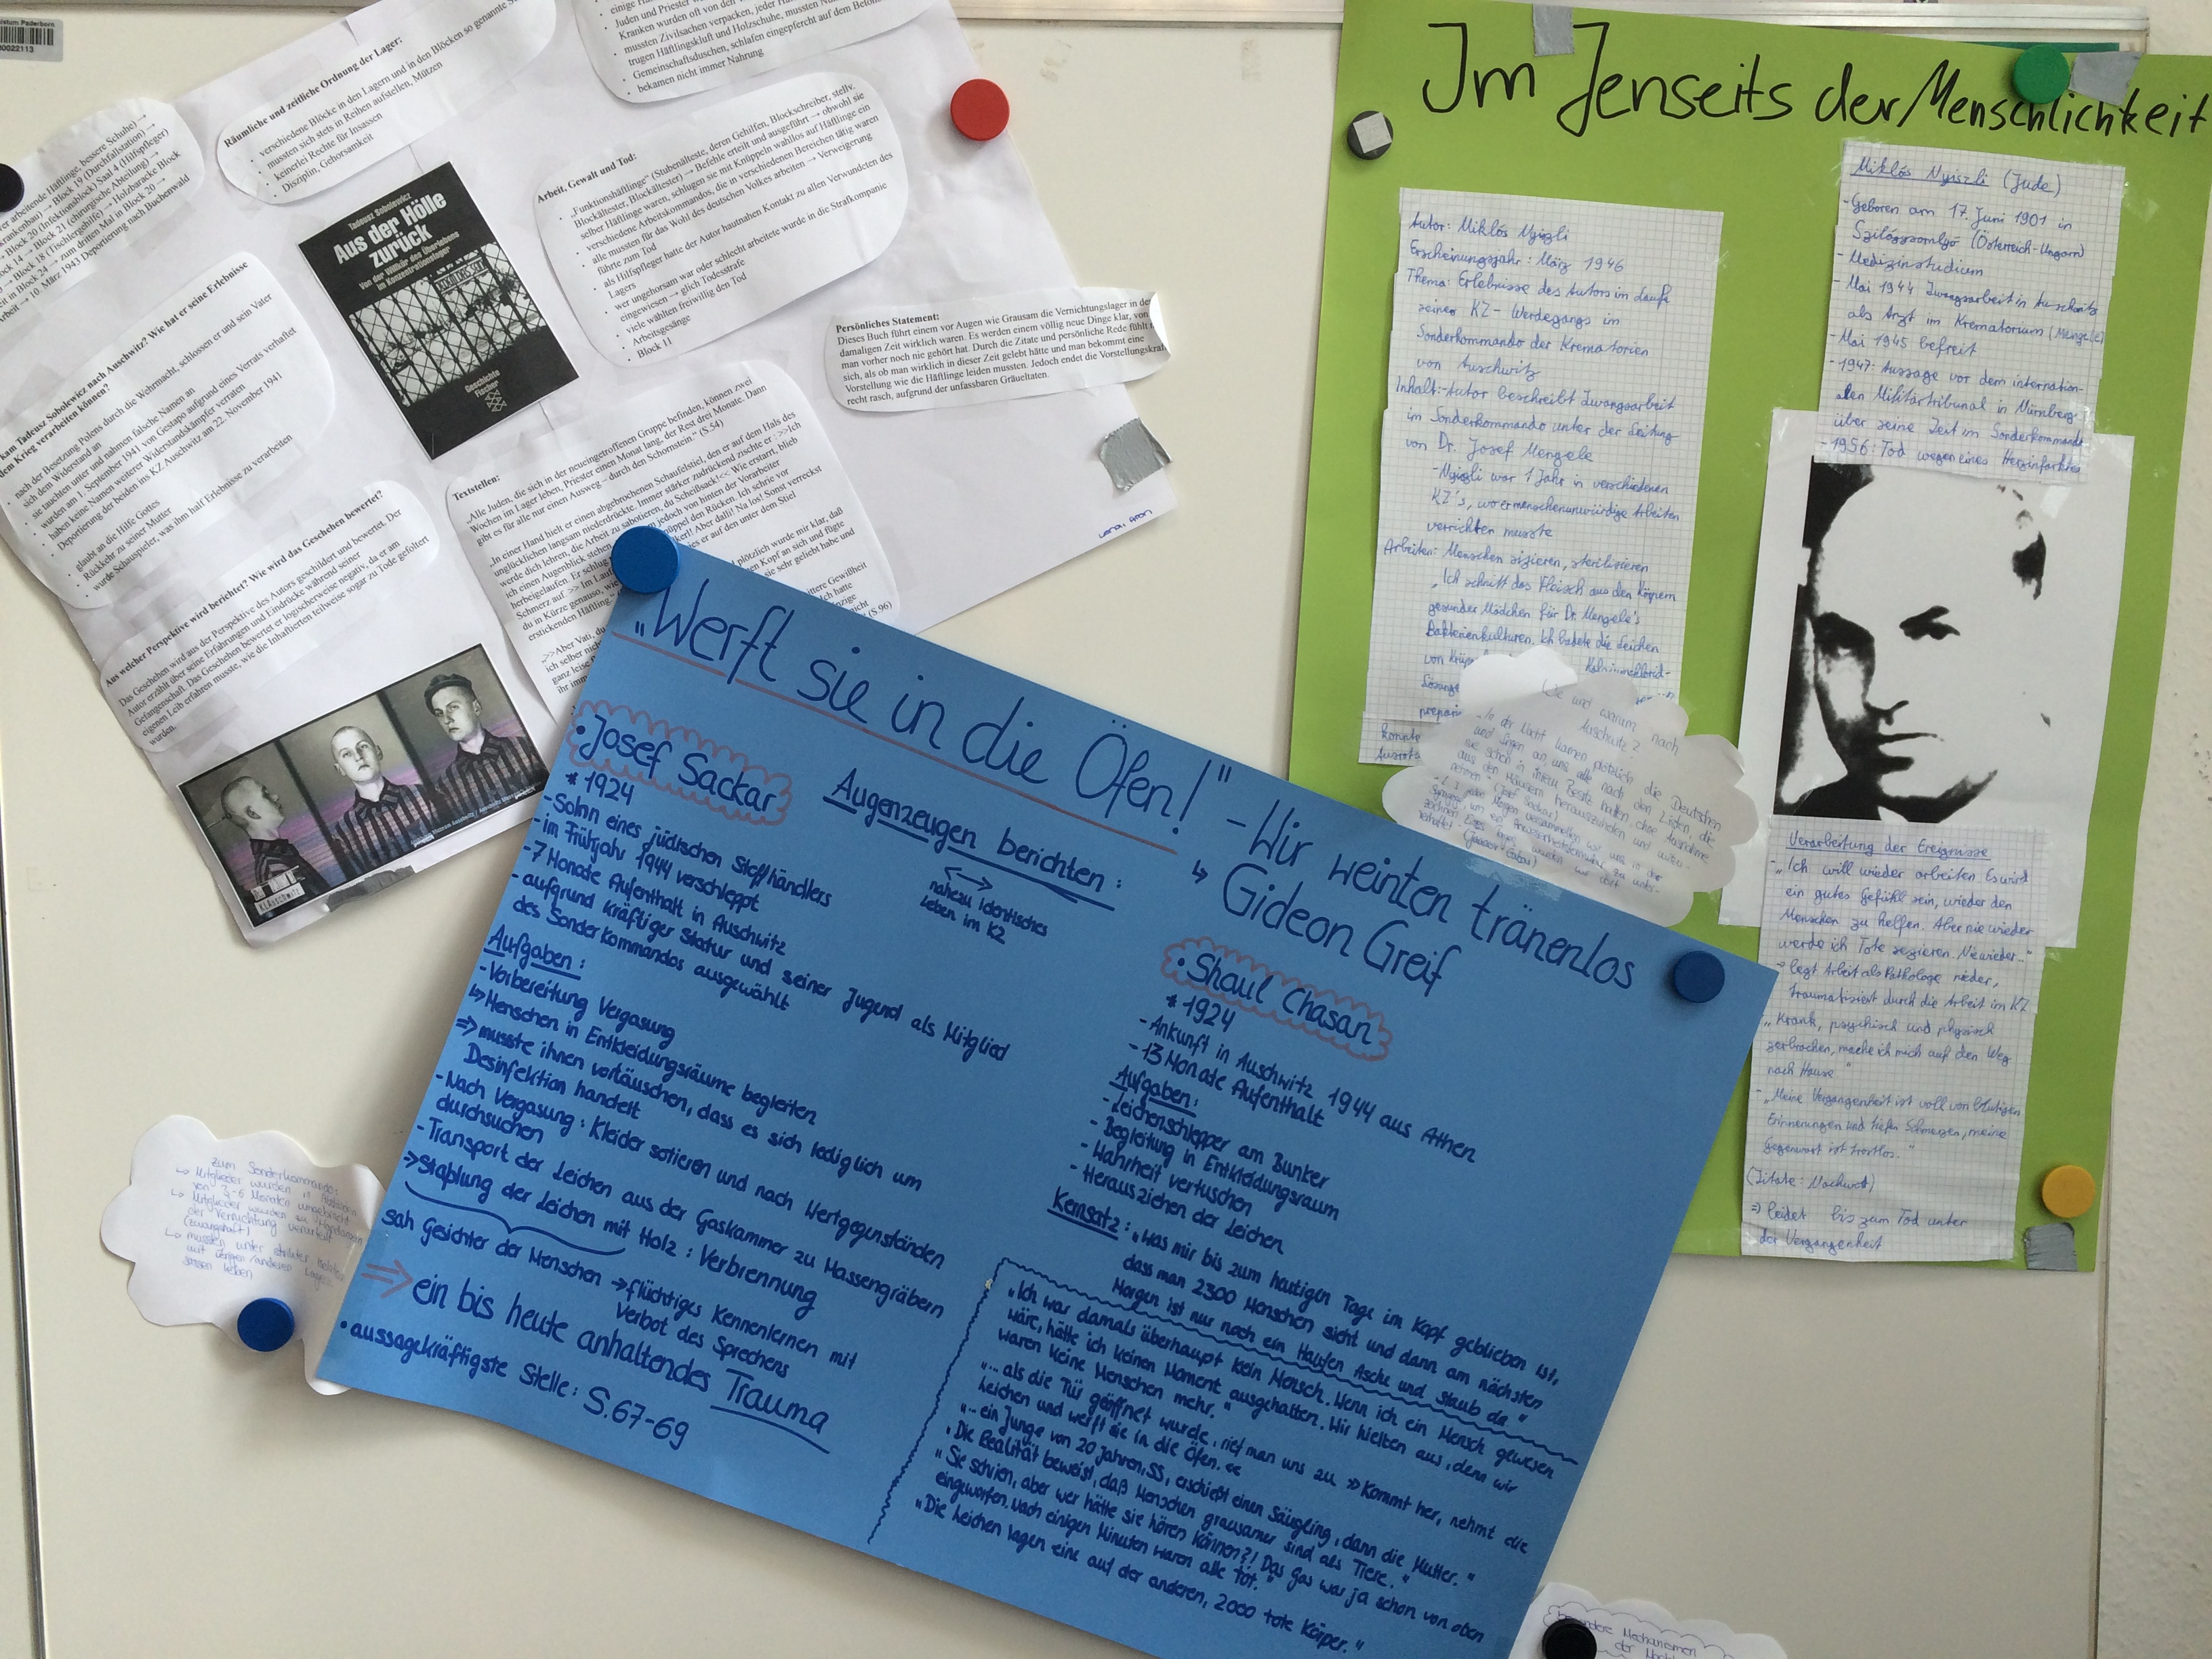 istum Paderborn
0022113
einige
Juden und Priester
Kranken wurden oft von den
mussten Zivilsachen verpacken, jeder
trugen Häftlingskluft und Holzschuhe, mussten
Gemeinschaftsduschen, schlafen eingepfercht auf dem
bekamen nicht immer Nahrung
Räumliche und zeitliche Ordnung der Lager:
verschiedene Blöcke in den Lagern und in den Blöcken so genannte
mussten sich stets in Reihen aufstellen, Mützen
keinerlei Rechte für Insassen
Disziplin, Gehorsamkeit
arbeitende Häftlinge, bessere Schuhe) →
→ Block 19 (Durchfallstation) →
Block 20 (Infektionsblock) Saal 4 (Hilfspfleger)
Block 21 (chirurgische Abteilung) →
Block 18 (Tischlergehilfe) → Holzbaracke Block
Block 24 → zum dritten Mal in Block 20 →
→ 10. März 1943 Deportierung nach Buchenwald
Tadeusz Sobolewicz
Aus der Hölle
zurück
Von der Willkür des Überlebens
im Konzentrationslager
Geschichte
Fischer
Arbeit, Gewalt und Tod:
„Funktionshäftlinge“ (Stubenälteste, deren Gehilfen, Blockschreiber, stellv.
Blockältester, Blockältester) → Befehle erteilt und ausgeführt → obwohl sie
selber Häftlinge waren, schlugen sie mit Knüppeln wahllos auf Häftlinge ein
verschiedene Arbeitskommandos, die in verschiedenen Bereichen tätig waren
alle mussten für das Wohl des deutschen Volkes arbeiten → Verweigerung
führte zum Tod
als Hilfspfleger hatte der Autor hautnahen Kontakt zu allen Verwundeten des
Lagers
wer ungehorsam war oder schlecht arbeitete wurde in die Strafkompanie
eingewiesen → glich Todesstrafe
viele wählten freiwillig den Tod
Arbeitsgesänge
Block 11
Persönliches Statement:
Dieses Buch führt einem vor Augen wie Grausam die Vernichtungslager in der
damaligen Zeit wirklich waren. Es werden einem völlig neue Dinge klar, von
man vorher noch nie gehört hat. Durch die Zitate und persönliche Rede fühlt
sich, als ob man wirklich in dieser Zeit gelebt hätte und man bekommt eine
Vorstellung wie die Häftlinge leiden mussten. Jedoch endet die Vorstellungskraft
recht rasch, aufgrund der unfassbaren Gräueltaten.
kam Tadeusz Sobolewicz nach Auschwitz? Wie hat er seine Erlebnisse
dem Krieg verarbeiten können?
nach der Besetzung Polens durch die Wehrmacht, schlossen er und sein Vater
sich dem Widerstand an
sie tauchten unter und nahmen falsche Namen an
wurden am 1. September 1941 von Gestapo aufgrund eines Verrats verhaftet
haben keine Namen weiterer Widerstandskämpfer verraten
Deportierung der beiden ins KZ Auschwitz am 22. November 1941
glaubt an die Hilfe Gottes
Rückkehr zu seiner Mutter
wurde Schauspieler, was ihm half Erlebnisse zu verarbeiten
Aus welcher Perspektive wird berichtet? Wie wird das Geschehen bewertet?
Das Geschehen wird aus der Perspektive des Autors geschildert und bewertet. Der
Autor erzählt über seine Erfahrungen und Eindrücke während seiner
Gefangenschaft. Das Geschehen bewertet er logischerweise negativ, da er am
eigenen Leib erfahren musste, wie die Inhaftierten teilweise sogar zu Tode gefoltert
wurden.
Textstellen:
„Alle Juden, die sich in der neueingetroffenen Gruppe befinden, können zwei
Wochen im Lager leben, Priester einen Monat lang, der Rest drei Monate. Dann
gibt es für alle nur einen Ausweg – durch den Schornstein.“ (S.54)
„In einer Hand hielt er einen abgebrochenen Schaufelstiel, den er auf dem Hals des
unglücklichen langsam niederdrückte. Immer stärker zudrückend zischte er : >>Ich
werde dich lehren, die Arbeit zu sabotieren, du Scheißsack!<< Wie erstarrt, blieb
ich einen Augenblick stehen
jedoch von hinten der Vorarbeiter
herbeigelaufen. Er schlug
den Rücken. Ich schrie vor
Schmerz auf >> Im
Aber dalli! Na los! Sonst verreckst
du in Kürze genauso, wie
es er auf den unter dem Stiel
erstickenden Häftling.“
plötzlich wurde mir klar, daß
>>Aber Vati, du
ich selber
ganz leise
ihr
(S.96)
„Werft sie in die Öfen!“ - Wir weinten tränenlos
↳ Gideon Greif
Augenzeugen berichten:
↔
nahezu identisches
Leben im KZ
• Josef Sackar
* 1924
- Sohn eines jüdischen Stoffhändlers
- im Frühjahr 1944 verschleppt
- 7 Monate Aufenthalt in Auschwitz
- aufgrund kräftiger Statur und seiner Jugend als Mitglied
des Sonderkommandos ausgewählt
Aufgaben:
- Vorbereitung Vergasung
↳ Menschen in Entkleidungsräume begleiten
⇒ musste ihnen vortäuschen, dass es sich lediglich um
Desinfektion handelt
- Nach Vergasung: Kleider sotieren und nach Wertgegenständen
durchsuchen
- Transport der Leichen aus der Gaskammer zu Massengräbern
⇒ Staplung der Leichen mit Holz: Verbrennung
sah Gesichter der Menschen → flüchtiges Kennenlernen mit
Verbot des Sprechens
⇒ ein bis heute anhaltendes Trauma
• aussagekräftigste Stelle: S.67-69
• Shaul Chasan
* 1924
- Ankunft in Auschwitz 1944 aus Athen
- 13 Monate Aufenthalt
Aufgaben:
- Leichenschlepper am Bunker
- Begleitung in Entkleidungsraum
- Wahrheit vertuschen
- Herausziehen der Leichen
Kernsatz: „was mir bis zum heutigen Tage im Kopf geblieben ist,
dass man 2300 Menschen sieht und dann am nächsten
Morgen ist nur noch ein Haufen Asche und Staub da“
„Ich war damals überhaupt kein Mensch. Wenn ich ein Mensch gewesen
wäre, hätte ich keinen Moment ausgehalten. Wir hielten aus, denn wir
waren keine Menschen mehr.“
„... als die Tür geöffnet wurde, rief man uns zu »Kommt her, nehmt die
Leichen und werft sie in die Öfen.««
„... ein Junge von 20 Jahren, SS, erschießt einen Säugling, dann die Mutter.“
„Die Realität beweist, daß Menschen grausamer sind als Tiere.“
„Sie schrien, aber wer hätte sie hören können?! Das Gas war ja schon von oben
eingeworfen. Nach einigen Minuten waren alle tot.“
„Die Leichen lagen eine auf der anderen, 2000 tote Körper.“
Im Jenseits der Menschlichkeit
Autor: Miklós Nyiszli
Erscheinungsjahr: März 1946
Thema: Erlebnisse des Autors im Laufe
seines KZ-Werdegangs im
Sonderkommando der Krematorien
von Auschwitz
Inhalt: - Autor beschreibt Zwangsarbeit
im Sonderkommando unter der Leitung
von Dr. Josef Mengele
- Nyiszli war 1 Jahr in verschiedenen
KZ's, wo er menschenunwürdige Arbeiten
verrichten musste
Arbeiten: Menschen sizieren, sterilisieren
„Ich schnitt das Fleisch aus den Körpern
gesunder Mädchen für Dr. Mengele's
Bakterienkulturen. Ich badete die Leichen
von
konnte
Miklós Nyiszli (Jude)
- Geboren am 17. Juni 1901 in
Szilágysomlyó (Österreich-Ungarn)
- Medizinstudium
- Mai 1944 Zwangsarbeit in Auschwitz
als Arzt im Krematorium (Mengele)
- Mai 1945 befreit
- 1947: Aussage vor dem internation-
alen Militärtribunal in Nürnberg
über seine Zeit im Sonderkommando
- 1956: Tod wegen eines Herzinfarktes
Wie und warum nach
Auschwitz?
„In der Nacht kamen plötzlich die Deutschen
und fingen an, uns alle nach den Listen, die
sie schon in ihrem Besitz hatten ohne Ausnahme
aus den Häusern herauszuholen und mitzu-
nehmen“ (Josef Sackar)
Verarbeitung der Ereignisse
- „Ich will wieder arbeiten. Es wird
ein gutes Gefühl sein, wieder den
Menschen zu helfen. Aber nie wieder
werde ich Tote sezieren. Nie wieder..“
⇒ legt Arbeit als Pathologe nieder,
traumatisiert durch die Arbeit im KZ
„Krank, psychisch und physisch
zerbrochen, mache ich mich auf den Weg
nach Hause“
- „Meine Vergangenheit ist voll von blutigen
Erinnerungen und tiefen Schmerzen, meine
Gegenwart ist trostlos.“
(Zitate: Nachwort)
⇒ leidet bis zum Tod unter
der Vergangenheit
zum Sonderkommando:
↳ Mitglieder wurden in Abständen
von 3-6 Monaten umgebracht
↳ Mitglieder wurden zu Handlangern
der Vernichtung verurteilt
(zwanghaft)
↳ mussten unter strikter Isolation
Mechanismen
der